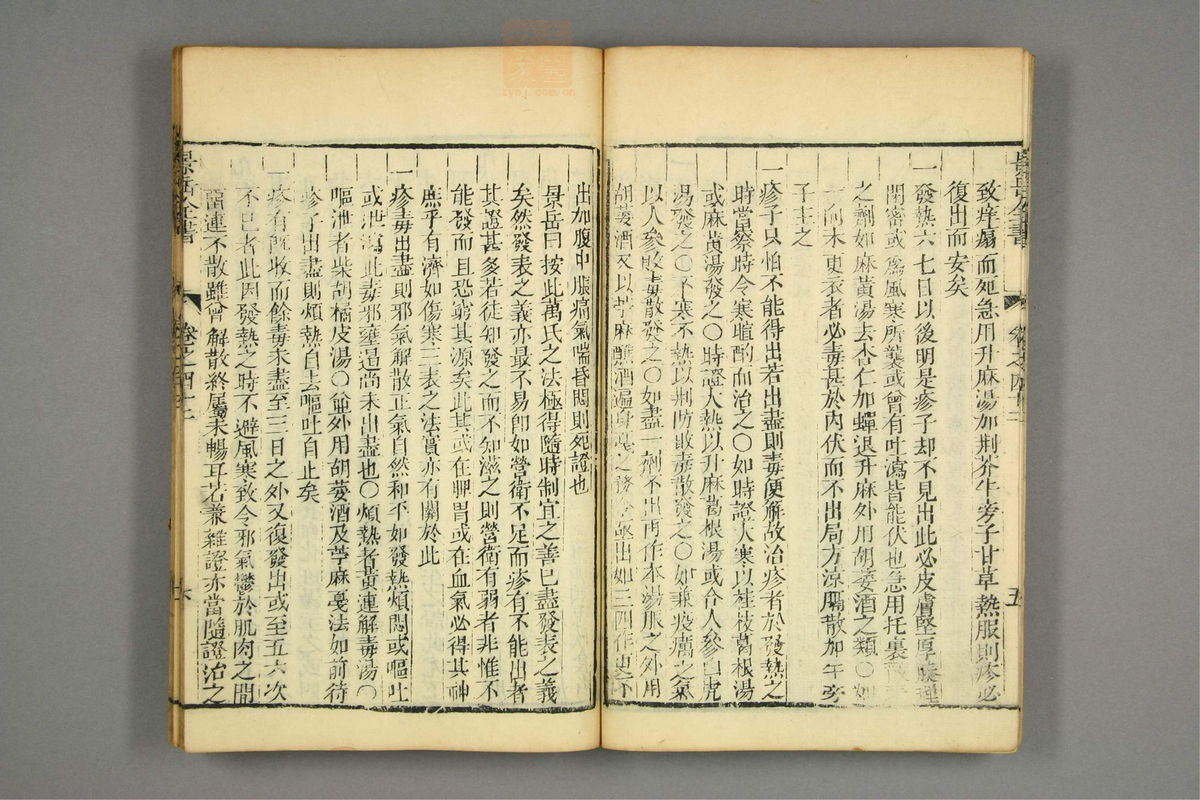 致痒塌而死急用升麻湯加荆芥牛旁子甘草熱服則疹必
復出而安矣
一發熱六七日以後明是疹子却不見出此必皮膚堅厚腠理
閉密或為風寒所襲或曾有吐瀉皆能伏也急用托裏
之劑如麻黃湯去杏仁加蟬退升麻外用胡荽酒之類○如
一向未更衣者必毒甚於内伏而不出局方涼膈散加牛旁
子主之
一疹子只怕不能得出若出盡則毒便解故治疹者於發熱之
時當察時令寒暄酌而治之○如時證大寒以桂枝葛根湯
或麻黃湯發之○時證大熱以升麻葛根湯或合人參白虎
湯發之○不寒不熱以荆防敗毒散發之○如兼疫癘之氣
以人參敗毒散發之○如盡一劑不出再作本湯服之外用
胡荽酒又以苧麻蘸酒遍身戞之務令亟出如三四作更不
出加腹中脹痛氣喘昏悶則死證也
景岳曰按此萬氏之法極得隨時制宜之善已盡發表之義
矣然發表之義亦最不易即如營衛不足而疹有不能出者
其證甚多若徒知發之而不知滋之則營衛有弱者非惟不
能發而且恐窮其源矣此其或在脾胃或在血氣必得其神
庶乎有濟如傷寒三表之法實亦有關於此
一疹毒出盡則邪氣解散正氣自然和平如發熱煩悶或嘔吐
或泄瀉此毒邪壅遏尚未出盡也○煩熱者黃連解毒湯○
嘔泄者柴胡橘皮湯○並外用胡荽酒及苧麻戞法如前待
疹子出盡則煩熱自去嘔吐自止矣
一疹有既收而餘毒未盡至三日之外又復發出或至五六次
不已者此因發熱之時不避風寒致令邪氣鬱於肌肉之間
留連不散雖曾解散終屬未暢耳若兼雜證亦當隨證治之
景岳全書
卷之四十三